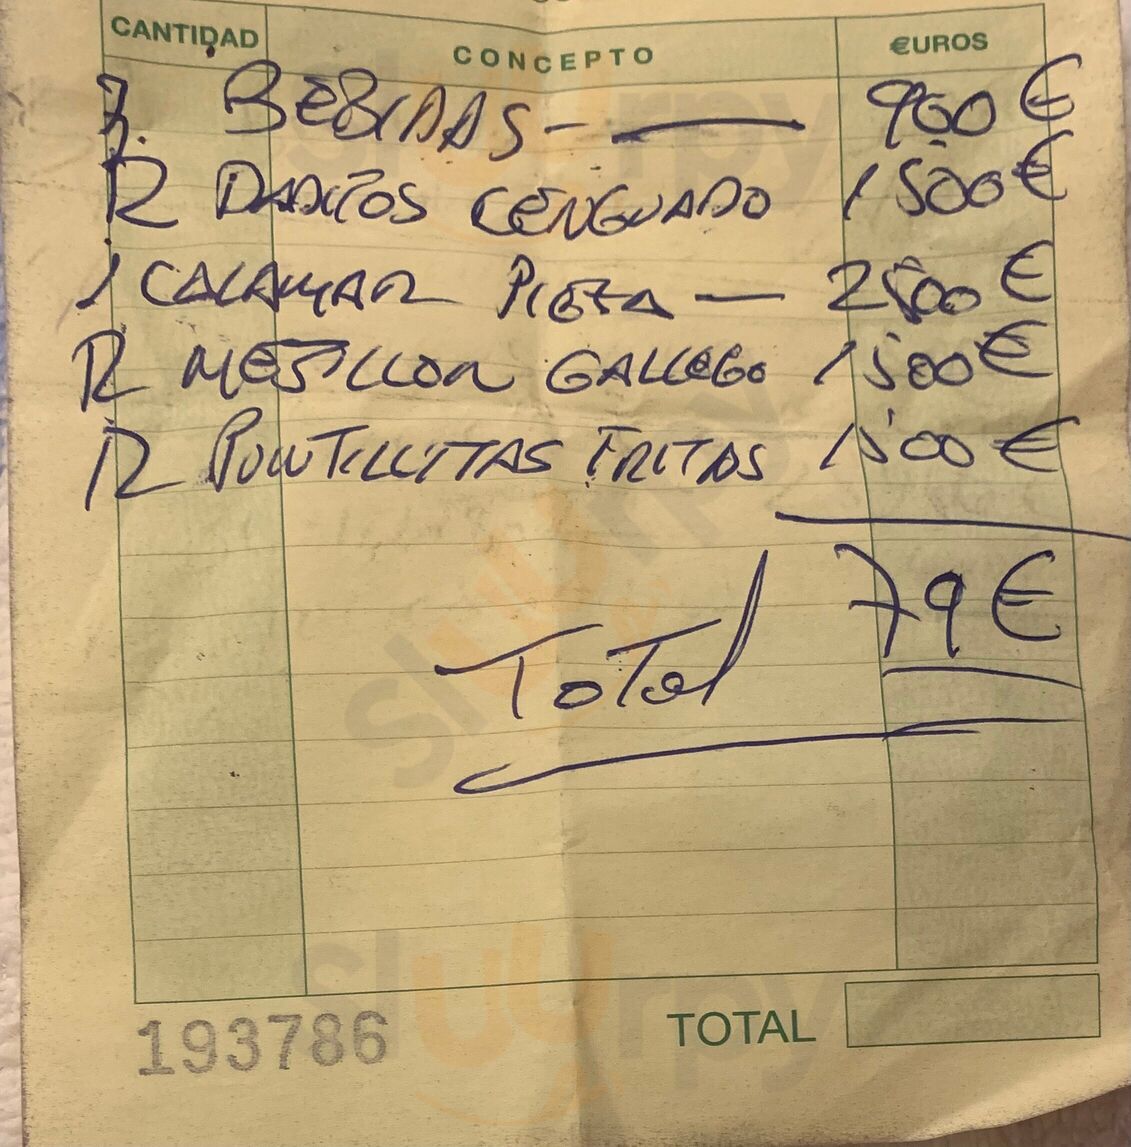 CANTIDAD CONCEPTO €UROS
3. BEBIDAS - — 9'00 €
R DADITOS CENGUADO 15'00 €
1 CALAMAR PIEZA — 25'00 €
R MEJILLON GALLEGO 15'00 €
R PUNTILLITAS FRITAS 15'00 €
79 €
Total
193786 TOTAL
sluurpy
sluurpy
sluurpy